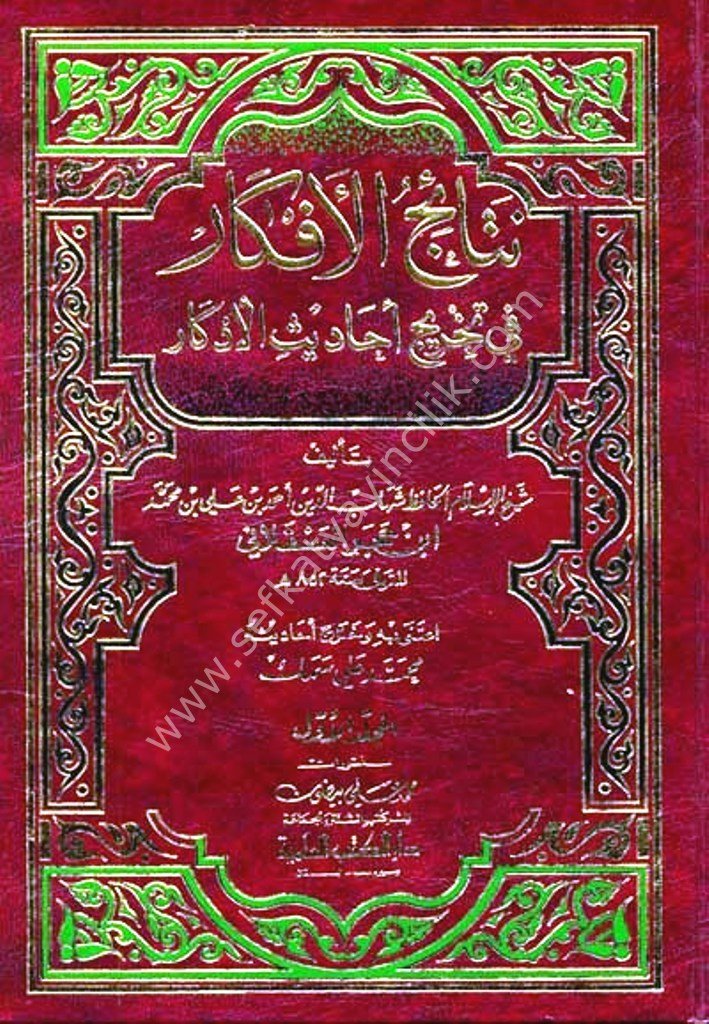 نَتَائِجُ الأَفْكَارِ
في تخريج أحاديث الأذكار
تأليف
شيخ الإسلام الحافظ شهاب الدين أحمد بن علي بن محمد
ابن حجر العسقلاني
المتوفى سنة ٨٥٢ هـ
اعتنى به وخرج أحاديثه
محمد علي سمك
منشورات
محمد علي بيضون
لنشر كتب السنة والجماعة
دار الكتب العلمية
www.sefkatyayincilik.com